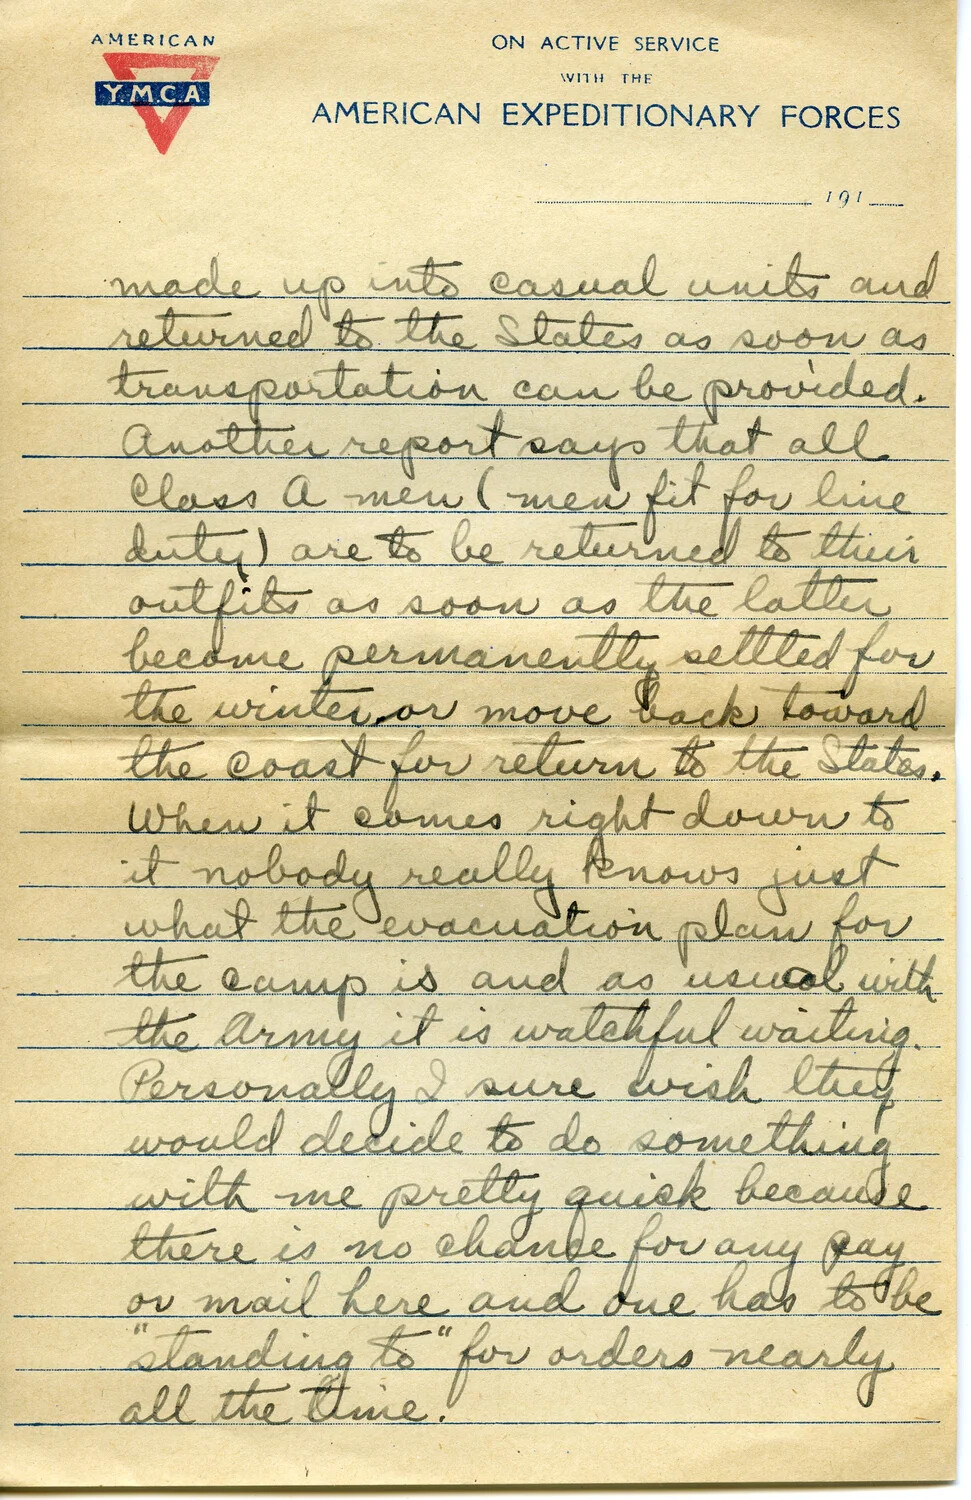 AMERICAN
Y.M.C.A
ON ACTIVE SERVICE
WITH THE
AMERICAN EXPEDITIONARY FORCES
191
made up into casual units and
returned to the States as soon as
transportation can be provided.
Another report says that all
Class A men (men fit for line
duty) are to be returned to their
outfits as soon as the latter
become permanently settled for
the winter or move back toward
the coast for return to the States.
When it comes right down to
it nobody really knows just
what the evacuation plan for
the camp is and as usual with
the Army it is watchful waiting.
Personally I sure wish they
would decide to do something
with me pretty quick because
there is no chance for any pay
or mail here and one has to be
"standing to" for orders nearly
all the time.